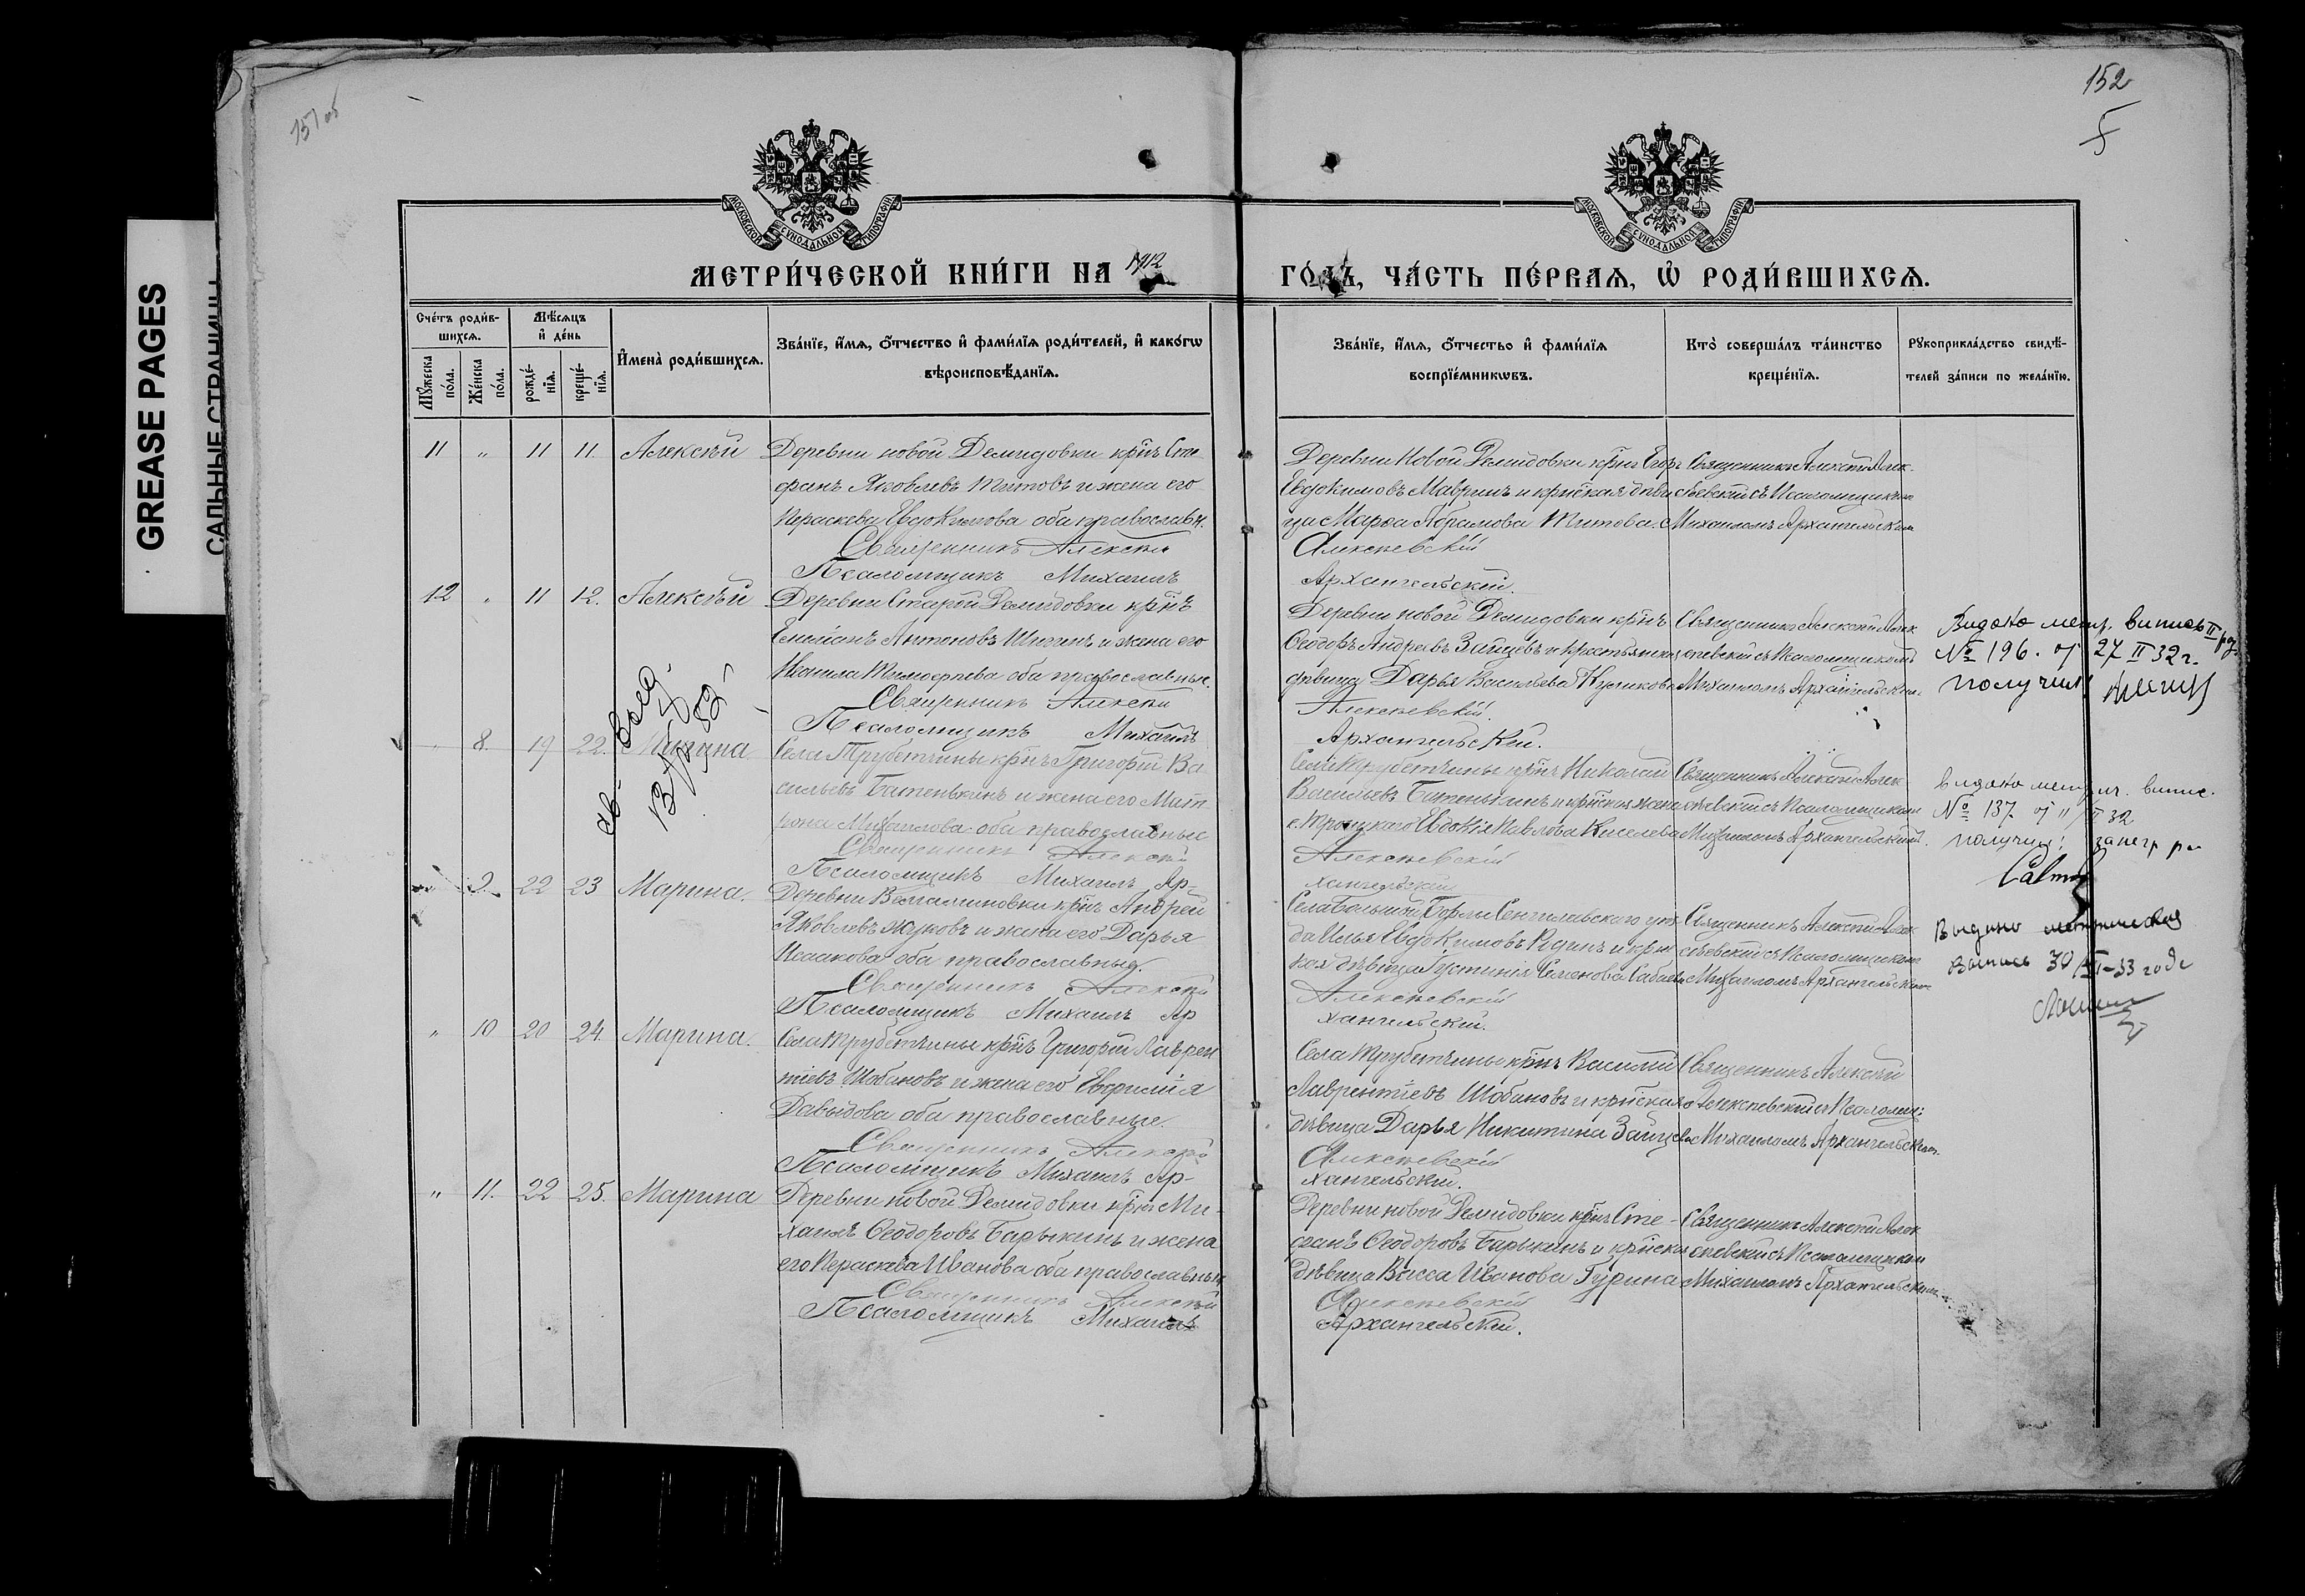 GREASE PAGES
САЛЬНЫЕ СТРАНИЦЫ
151 об
152
5
МОСКОВСКОЙ СУНОДАЛЬНОЙ ТИПОГРАФІИ
МОСКОВСКОЙ СУНОДАЛЬНОЙ ТИПОГРАФІИ
МЕТРИ́ЧЕСКОЙ КНИ́ГИ НА 1912 ГО́ДЪ, ЧА́СТЬ ПЕ́РВАѦ, Ѡ҆ РОДИ́ВШИХСѦ.
Сче́тъ роди́вшихсѧ.
Мꙋ́жеска по́ла.
Же́нска по́ла.
Мѣ́сѧцъ и҆ де́нь
рожде́нїѧ.
креще́нїѧ.
И҆мена̀ роди́вшихсѧ.
Зва́нїе, и҆́мѧ, ѻ҆́тчество и҆ фами́лїѧ роди́телей, и҆ како́гѡ вѣроисповѣ́данїѧ.
Зва́нїе, и҆́мѧ, ѻ҆́тчество и҆ фами́лїѧ воспрїе́мникѡвъ.
Кто̀ соверша́лъ та́инство креще́нїѧ.
Рꙋкоприкла́дство свидѣ́телей за́писи по жела́нїю.
11 „ 11 11. Алексѣй Деревни новой Демидовки крнъ Сте
фанъ Яковлевъ Титовъ и жена его
Параскева Евдокимова оба православн.
Священникъ Алексѣй
Псаломщикъ Михаилъ
Деревни Новой Демидовки крнъ Егоръ
Евдокимовъ Мавринъ и крнская дѣви
ца Марѳа Абрамова Титова.
Алексѣевскій
Архангельскій.
Священникъ Алексѣй Алек
сѣевскій съ Псаломщикомъ
Михаиломъ Архангельскимъ
12 „ 11 12. Алексѣй Деревни Старой Демидовки крнъ
Емельянъ Антоновъ Шигинъ и жена его
Тимофеева оба православные.
Священникъ Алексѣй
Псаломщикъ Михаилъ
Деревни новой Демидовки крнъ
Ѳеодоръ Андреевъ Зайцевъ и крестьянская
дѣвица Дарья Васильева Куликова
Алексѣевскій.
Архангельскій.
Священникъ Алексѣй Алек
сѣевскій съ Псаломщикомъ
Михаиломъ Архангельским.
Видано метр. випись II
№ 196. от 27 II 32 г.
получил
„ 8. 19 22. Марина Села Трубетчины крнъ Григорій Ва
сильевъ Батенькинъ и жена его Мат
рона Михаилова оба православные
Священникъ Алексѣй
Псаломщикъ Михаилъ Ар-
Села Трубетчины крнъ Николай
Васильевъ Батенькинъ и крнская жена
с. Троицкаго Евдокія Павлова Киселева
Алексѣевскій
хангельскій
Священникъ Алексѣй Алек
сѣевскій съ Псаломщикомъ
Михаиломъ Архангельскимъ.
Видано метрич. випис.
№ 137. от 11/II 32
получил
9. 22 23 Марина. Деревни Веньяминовки крнъ Андрей
Яковлевъ Жуковъ и жена его Дарья
Исаакова оба православные.
Священникъ Алексѣй
Псаломщикъ Михаилъ Ар
да Илья Евдокимовъ и крнс
кая дѣвица Устинія Семенова
Алексѣевскій
хангельскій.
Священникъ Алексѣй Алек
сѣевскій съ Псаломщикомъ
Михаиломъ Архангельским
Выдано метрическая
выпись 30/III-33 года
„ 10 20 24. Марина. Села Трубетчины крнъ Григорій Лаврен
тіевъ Шобановъ и жена его Евфимія
Давыдова оба православные.
Священникъ Алексѣй
Псаломщикъ Михаилъ Ар-
Села Трубетчины крнъ Василій
Лаврентіевъ Шобановъ и крнская
дѣвица Дарья Никитина Зайцева
Алексѣевскій
хангельскій.
Священникъ Алексѣй
Алексѣевскій съ Псаломщ.
Михаиломъ Архангельскимъ.
„ 11. 22 25. Марина Деревни новой Демидовки крнъ Ми-
хаилъ Ѳеодоровъ Барыкинъ и жена
его Параскева Иванова оба православные
Священникъ Алексѣй
Псаломщикъ Михаилъ
Деревни новой Демидовки крнъ Сте-
фанъ Ѳеодоровъ Барыкинъ и крнская
дѣвица Васса Иванова Гурина
Алексѣевскій
Архангельскій.
Священникъ Алексѣй Алек
сѣевскій съ Псаломщиком
Михаиломъ Архангельским